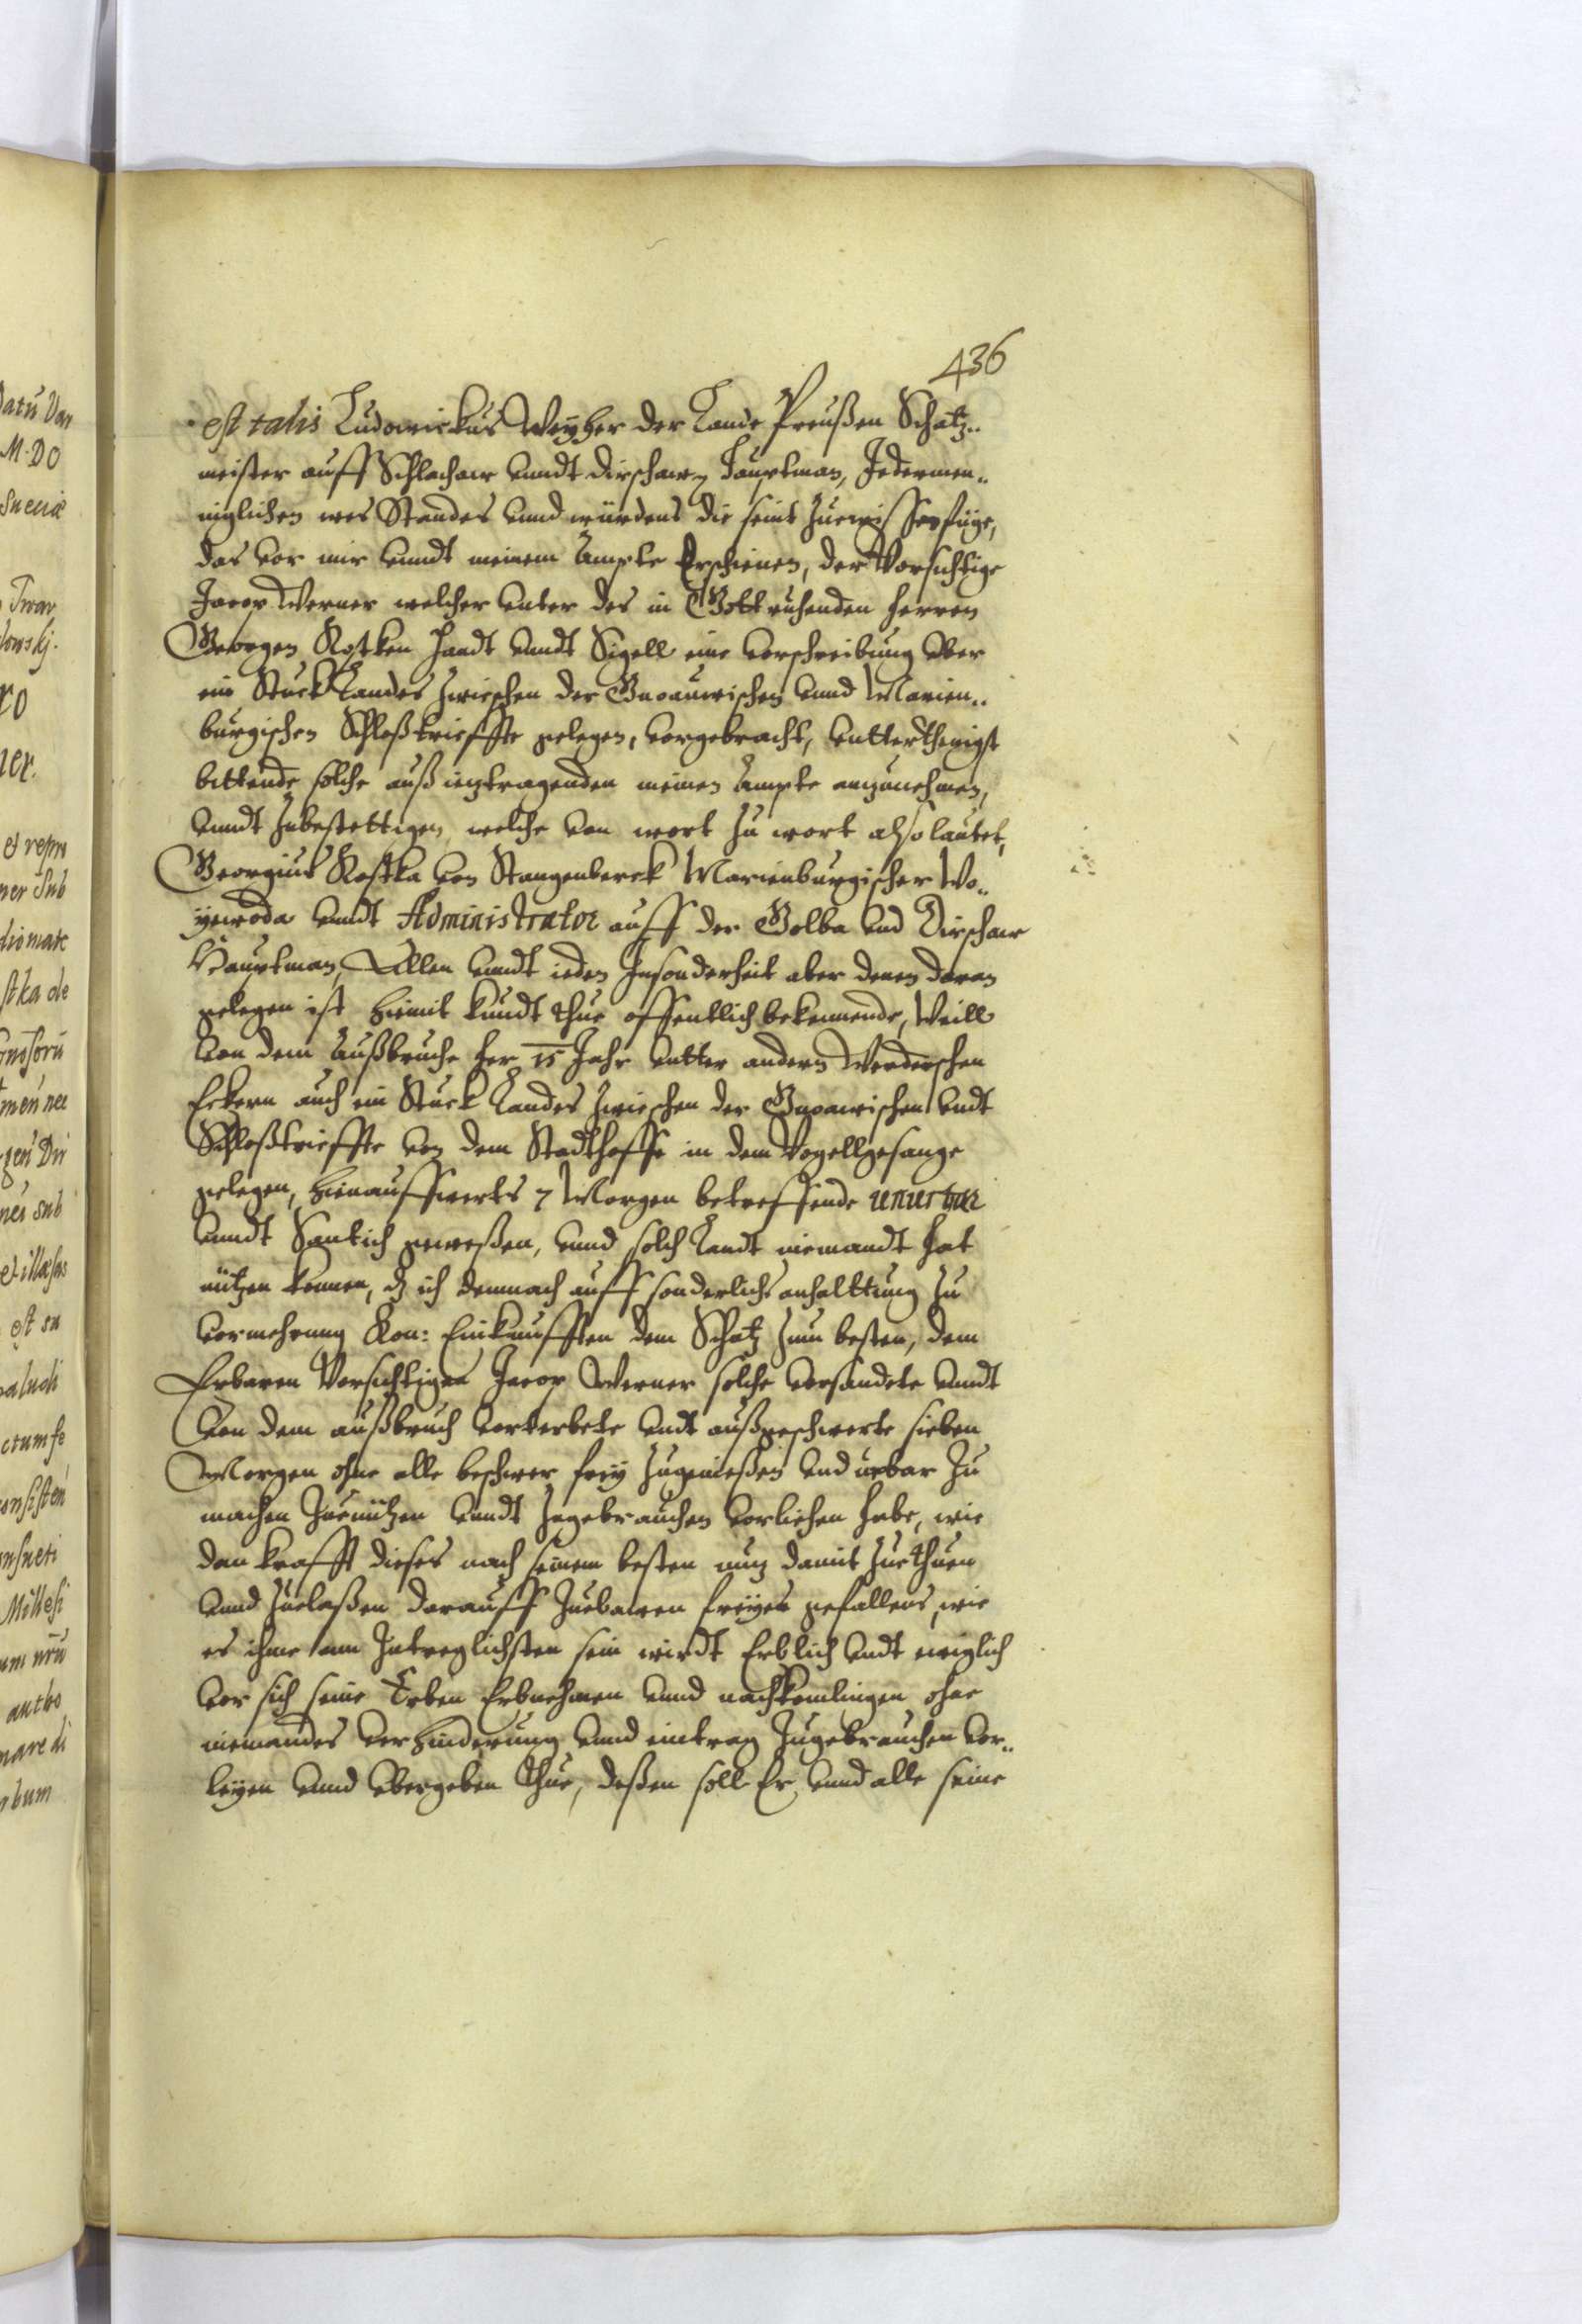 436
est talis Ludowickus Weyher der Lande Preußen Schatz..
meister auff Schlachaw vundt Dirschaw Hauptman, Jedermen..
niglichen wes Standes vnnd würdens die seint Zuewissen füge,
das vor mir vnndt meinem Ampte Erschienen, der Vorsichtige
Jacop Werner welcher vnter des in Gott ruhenden Herren
Georgen Kostken Handt vnndt Sigell eine vorschreibung vber
ein Stuck Landes zwieschen der Gnoauwischen vnnd Marien..
burgischen Schloßtriefft gelegen, vorgebracht, vntterthenigst
bittende solche auß ieztragenden meinen Ampte anzunehmen,
vnndt Zubestettigen welche von wort zu wort also lautet,
Georgius Kostka von Stangenberck Marienburgischer Wo..
yewoda vnndt Administrator auff der Golba vnd Dirschaw
Hauptman, Allen vnndt ieden Insonderheit aber denen daran
gelegen ist hiemit kundt thue offentlich bekennende, Weill
von dem Außbruche her 15 Jahr vntter andern Werderschen
Eckern auch ein Stuck Landes zwieschen der Gnoawischen vndt
Schloßtriefft von dem Stadthoffe in dem Vogellgesange
gelegen, hienauffwerts 7 Morgen betreffende unurbar
vnndt Santich geweßen, vnnd solch Landt niemandt hat
nützen konnen, dz ich demnach auff sonderlichs anhalttung zu
vormehrung Kön: Einkunfften dem Schatz zum besten, dem
Erbaren Vorsichtigen Jacop Werner solche versandete vnndt
von dem außbruch vorterbete vndt außgeschwerte sieben
Morgen ohne alle beschwer frey zugenießen vnd urbar zu
machen Zuenützen vnndt Zugebrauchen vorliehen habe, wie
dan krafft dieses nach seinem besten nuz damit zuethuen
vnnd zuelaßen darauff Zuebawen freyes gefallens, wie
es ihme am Zutreglichsten sein wirdt Erblich vndt ewiglich
vor sich seine Erben Erbnehmen vnnd nachkomlingen ohne
niemandes verhinderung vnnd eintrag Zugebrauchen vor..
leyen vnnd vbergeben thue, deßen soll Er vnnd alle seine